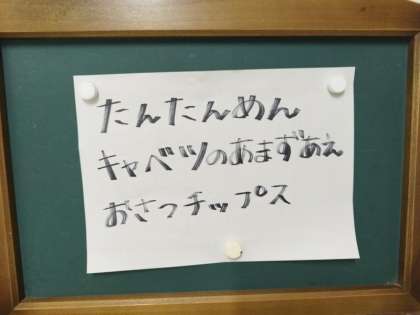 たんたんめん
キャベツのあまずあえ
おさつチップス